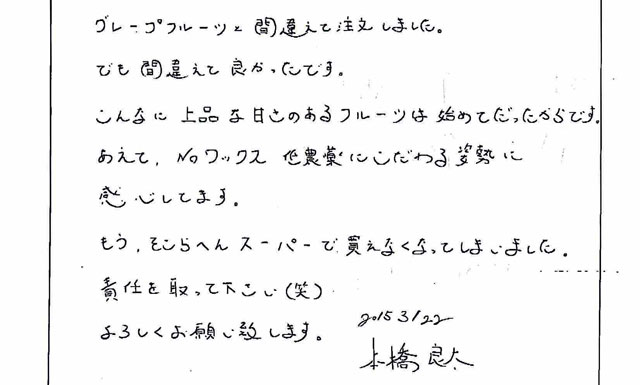 グレープフルーツと間違えて注文しました。
でも間違えて良かったです。
こんなに上品な甘さのあるフルーツは始めてだったからです。
あえて、Noワックス 低農薬にこだわる姿勢に
感心してます。
もう、そこらへんスーパーで買えなくなってしまいました。
責任を取って下さい(笑)
よろしくお願い致します。
2015 3/22
本橋良太